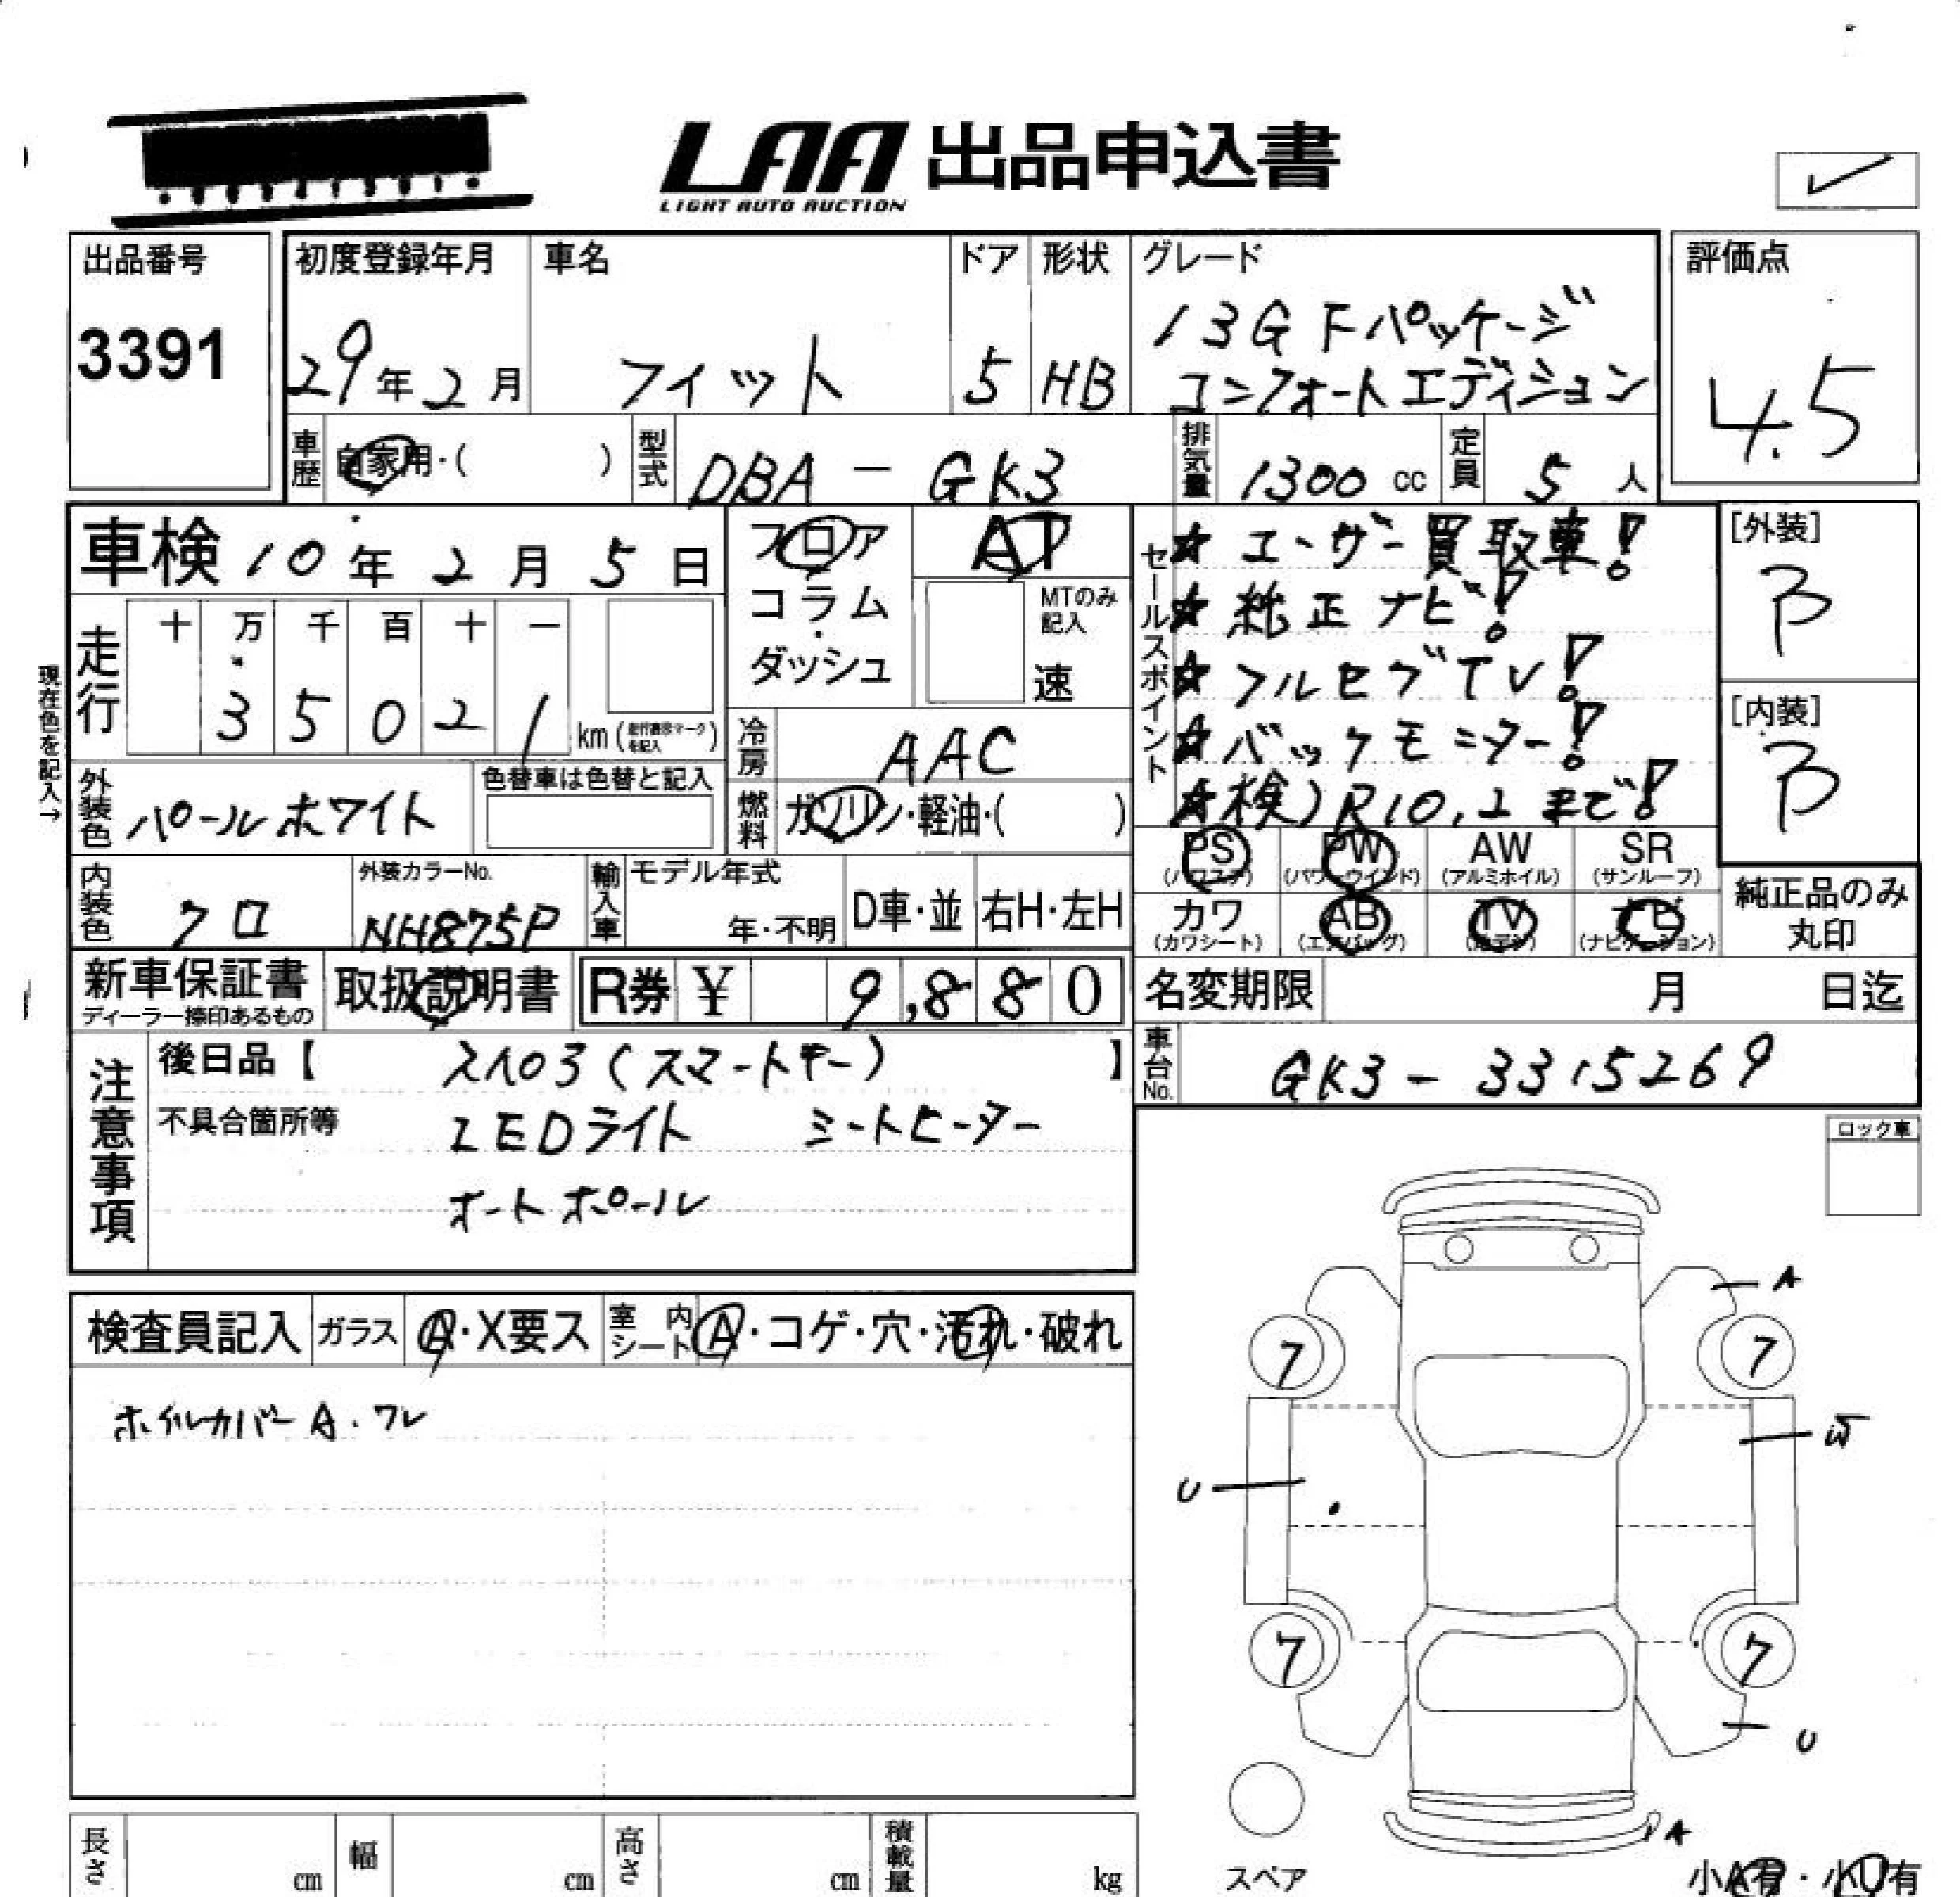 LAA 出品申込書
LIGHT AUTO AUCTION
出品番号
3391
初度登録年月
29年2月
車名
フィット
ドア
5
形状
HB
グレード
13G Fパッケージ
コンフォートエディション
評価点
4.5
車歴
自家用・( )
型式
DBA-GK3
排気量
1300 cc
定員
5 人
車検 10年2月5日
フロア
コラム
・
ダッシュ
AT
MTのみ
記入
速
セールスポイント
★ユーザー買取車!
★純正ナビ!
★フルセグTV!
★バックモニター!
★検)R10.2まで!
[外装]
B
[内装]
B
現在色を記入→
走行
十 万 千 百 十 一
3 5 0 2 1
km(走行表示マークを記入)
冷房
AAC
外装色
パールホワイト
色替車は色替と記入
燃料
ガソリン・軽油・( )
PS
(パワステ)
PW
(パワーウインド)
AW
(アルミホイル)
SR
(サンルーフ)
内装色
クロ
外装カラーNo.
NH875P
輸入車
モデル年式
年・不明
D車・並
右H・左H
カワ
(カワシート)
AB
(エアバッグ)
TV
ナビ
(ナビゲーション)
純正品のみ
丸印
新車保証書
ディーラー捺印あるもの
取扱説明書
R券 ¥ 9,880
名変期限 月 日迄
注意事項
後日品【 スペア(スマートキー) 】
不具合箇所等
LEDライト シートヒーター
オートポール
車台No.
GK3-3315269
ロック車
検査員記入
ガラス
A・X要ス
室内シート
A・コゲ・穴・汚れ・破れ
ホイルカバーA・ワレ
A
7
7
W
U
7
7
U
A
スペア
小A有・小U有
長さ cm
幅 cm
高さ cm
積載量 kg